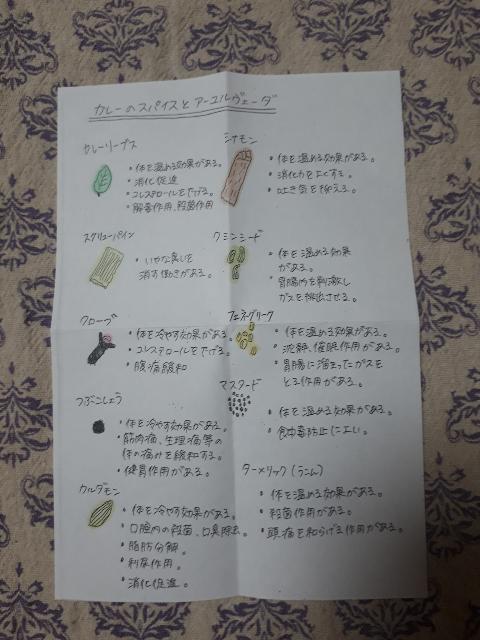 カレーのスパイスとアーユルヴェーダ
カレーリーブス
・体を温める効果がある。
・消化促進
・コレステロールを下げる。
・解毒作用、殺菌作用
スクリューパイン
・いやな臭いを
消す働きがある。
クローブ
・体を冷やす効果がある。
・コレステロールを下げる。
・腹痛緩和
つぶこしょう
・体を冷やす効果がある。
・筋肉痛、生理痛等の
体の痛みを緩和する。
・健胃作用がある。
カルダモン
・体を冷やす効果がある。
・口腔内の殺菌、口臭除去。
・脂肪分解。
・利尿作用。
・消化促進。
シナモン
・体を温める効果がある。
・消化力を上げる。
・吐き気を抑える。
クミンシード
・体を温める効果
がある。
・胃腸内を刺激し
ガスを排出させる。
フェネグリーク
・体を温める効果がある。
・沈静、催眠作用がある。
・胃腸に溜まったガスを
とる作用がある。
マスタード
・体を温める効果がある。
・食中毒防止に良い。
ターメリック(うこん)
・体を温める効果がある。
・殺菌作用がある。
・頭痛を和らげる作用がある。